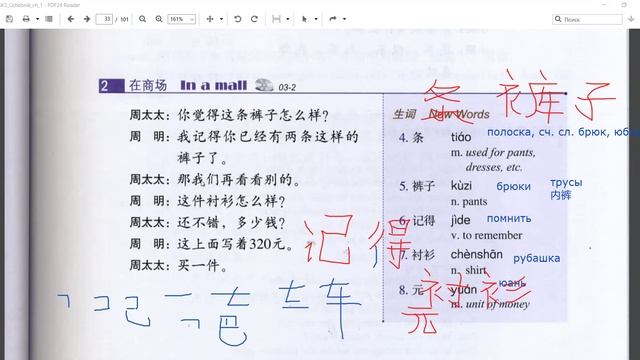 GK3_Uchebnik_ch_1 - PDF24 Reader
33 / 101
161%
Поиск
2 在商场 In a mall 03-2
周太太：你觉得这条裤子怎么样？
周 明：我记得你已经有两条这样的
裤子了。
周太太：那我们再看看别的。
周 明：这件衬衫怎么样？
周太太：还不错，多少钱？
周 明：这上面写着320元。
周太太：买一件。
条 裤子
生词 New Words
4. 条 tiáo полоска, сч. сл. брюк, юб
m. used for pants,
dresses, etc.
5. 裤子 kùzi брюки трусы
内裤
n. pants
6. 记得 jìde помнить
v. to remember
记得
7. 衬衫 chènshān рубашка
n. shirt
衬衫
8. 元 yuán юань
m. unit of money
元